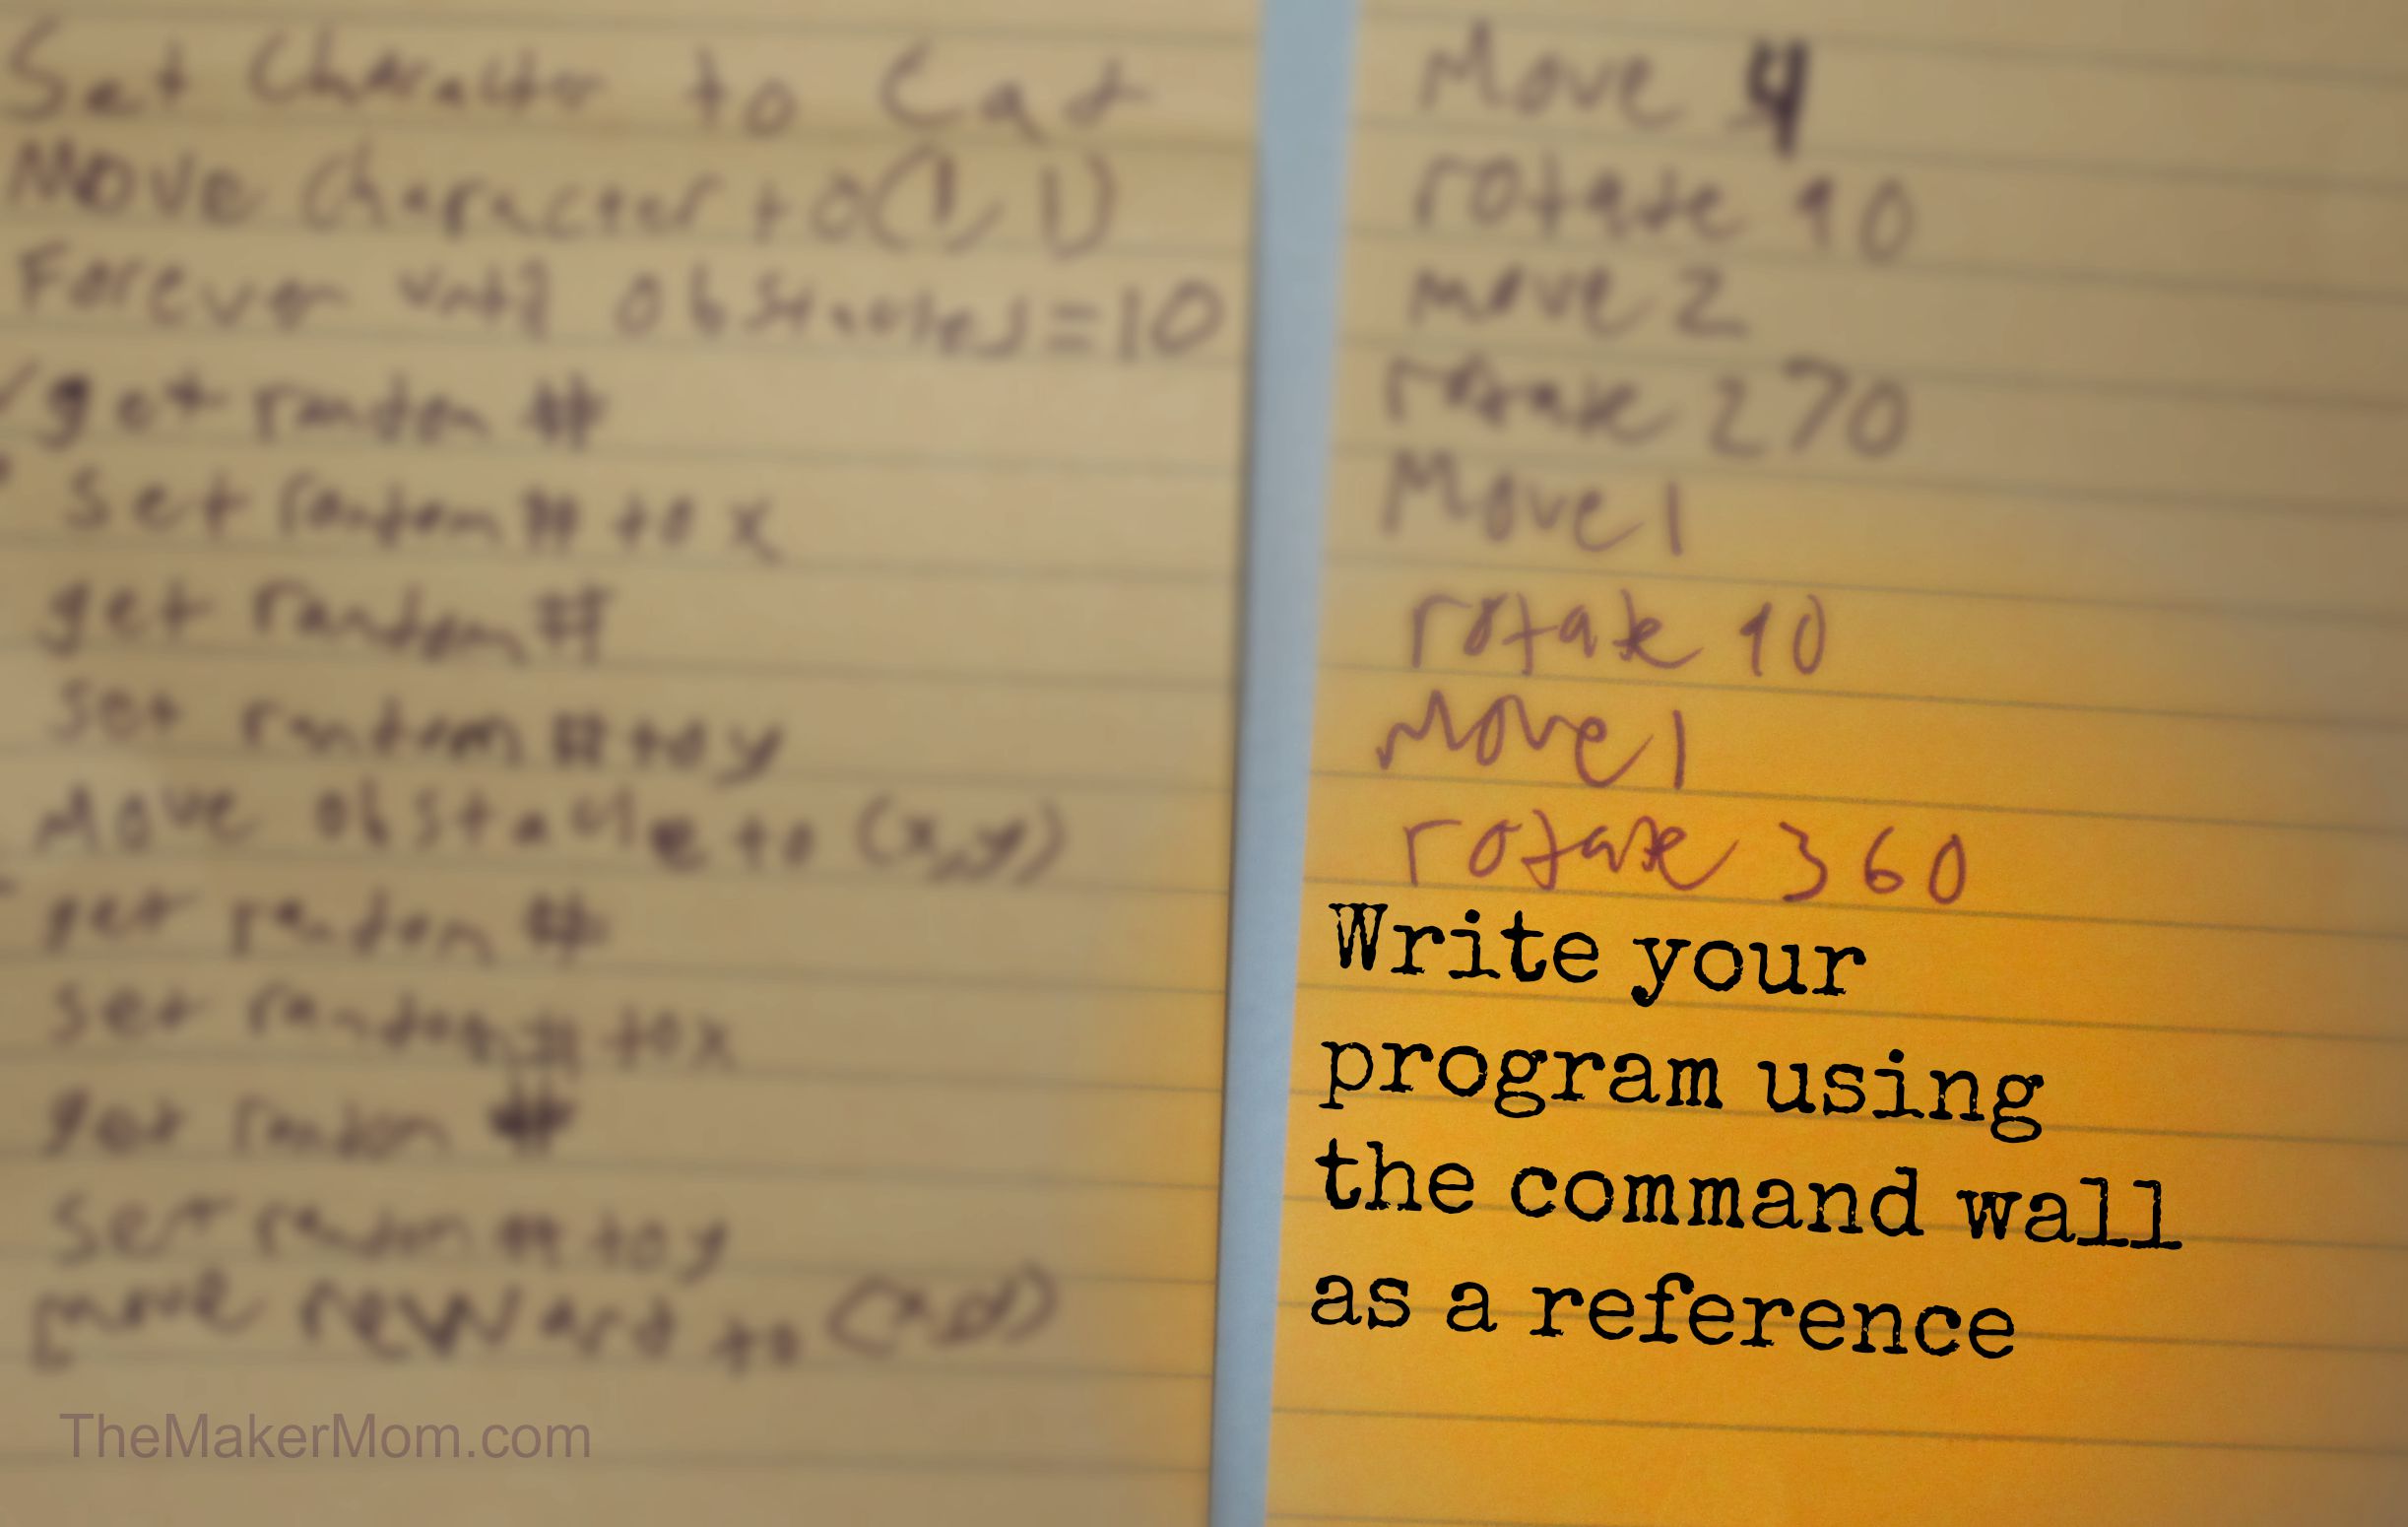 Set Character to Cat
Move Character to (1, 1)
Forever until obstacles = 10
get random #
set random # to x
get random #
set random # to y
Move obstacle to (x,y)
get random #
set random # to x
get random #
set random # to y
move reward to (x,y)
TheMakerMom.com
Move 4
rotate 90
move 2
rotate 270
Move 1
rotate 90
Move 1
rotate 360
Write your
program using
the command wall
as a reference